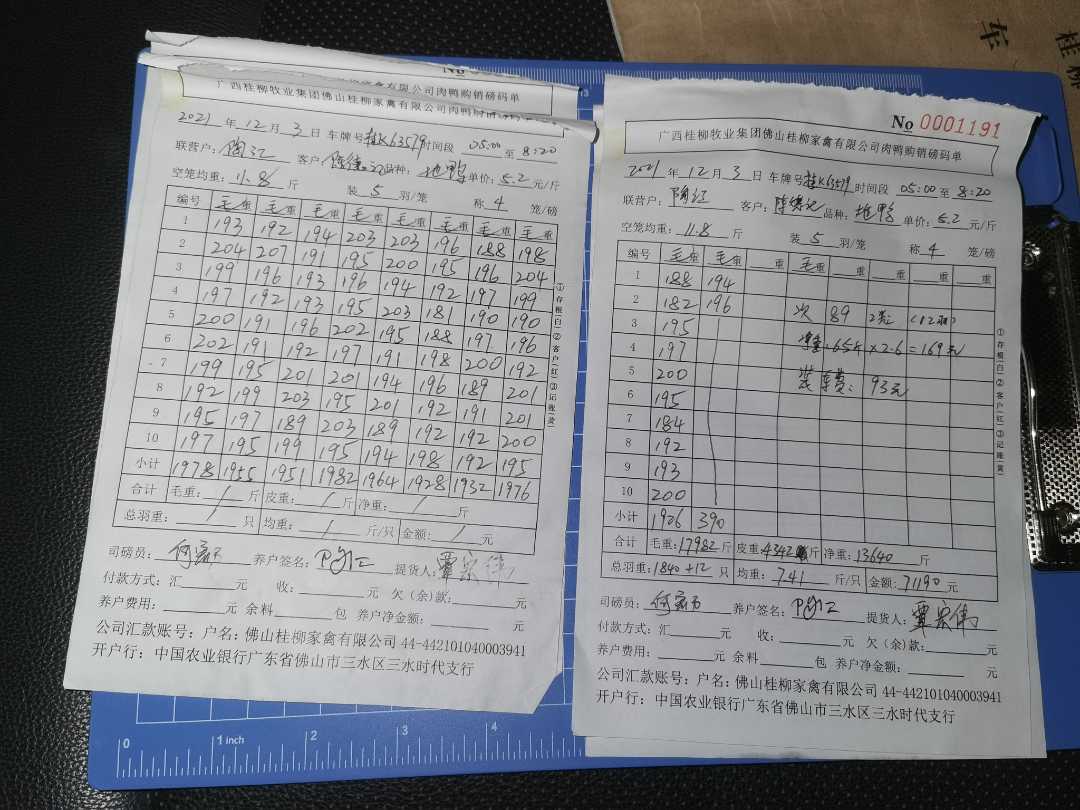 广西桂柳牧业集团佛山桂柳家禽有限公司肉鸭购销磅码单
2021年12月3日 车牌号桂K63579时间段 05:00至8:20
联营户：陶江 客户：陈德记品种：地鸭单价：5.2元/斤
空笼均重：11.8斤 装5羽/笼 称4笼/磅
编号 毛重 毛重 毛重 毛重 毛重 毛重 毛重 毛重
1 193 192 194 203 203 196 188 198
2 204 207 191 195 200 195 196 204
3 199 196 193 196 194 192 197 199
4 197 192 193 195 203 181 190 190
5 200 191 196 202 195 188 197 196
6 202 191 192 197 191 198 200 192
7 199 195 201 201 194 196 189 201
8 192 199 203 195 201 192 191 201
9 195 197 189 203 189 192 192 200
10 197 195 199 195 194 198 192 195
小计 1978 1955 1951 1982 1964 1928 1932 1976
合计 毛重：/斤 皮重：/斤 净重：/斤
总羽重：/只 均重：/斤/只 金额：/元
①存根(白)②客户(红)③记账(黄)
司磅员： 养户签名： 提货人：覃宗伟
付款方式：汇 元 收： 元 欠（余）款： 元
养户费用： 元 余料 包 养户净金额： 元
公司汇款账号：户名：佛山桂柳家禽有限公司 44-442101040003941
开户行：中国农业银行广东省佛山市三水区三水时代支行
No 0001191
广西桂柳牧业集团佛山桂柳家禽有限公司肉鸭购销磅码单
2021年12月3日 车牌号桂K63579时间段 05:00至8:20
联营户：陶江 客户：陈德记品种：地鸭单价：5.2元/斤
空笼均重：11.8斤 装5羽/笼 称4笼/磅
编号 毛重 毛重 重 毛重 重 重 重 重
1 188 194
2 182 196 次 89 2笼 (12羽)
3 195
4 197 净重：65斤×2.6=169元
5 200 装车费：93元
6 195
7 184
8 192
9 193
10 200
小计 1926 390
合计 毛重：17982斤 皮重：4342斤 净重：13640斤
总羽重：1840+12只 均重：7.41斤/只 金额：71190元
①存根(白)②客户(红)③记账(黄)
司磅员： 养户签名： 提货人：覃宗伟
付款方式：汇 元 收： 元 欠（余）款： 元
养户费用： 元 余料 包 养户净金额： 元
公司汇款账号：户名：佛山桂柳家禽有限公司 44-442101040003941
开户行：中国农业银行广东省佛山市三水区三水时代支行
0 1 inch 2 3 4
桂柳
车